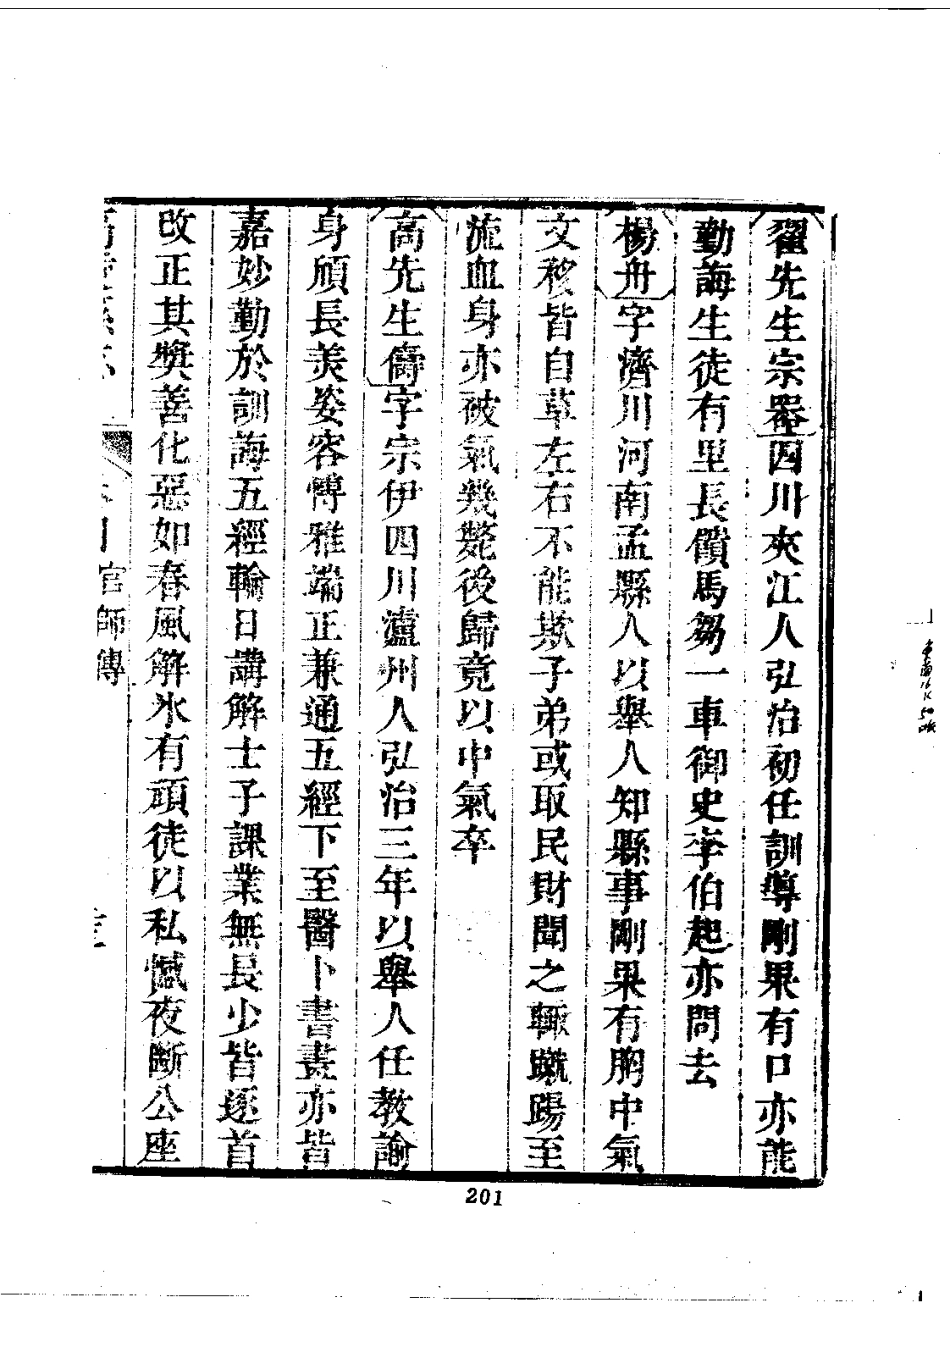 翟先生宗器四川夾江人弘治初任訓導剛果有口亦能
勤誨生徒有里長饋馬芻一車御史李伯起亦問去
楊舟字濟川河南孟縣人以舉人知縣事剛果有胸中氣
文移皆自草左右不能欺子弟或取民財聞之輒蹴踢至
流血身亦被氣幾斃後歸竟以中氣卒
高先生儔字宗伊四川瀘州人弘治三年以舉人任教諭
身頎長美姿容博雅端正兼通五經下至醫卜書畫亦皆
嘉妙勤於訓誨五經輪日講解士子課業無長少皆逐首
改正其獎善化惡如春風解氷有頑徒以私憾夜斷公座
官師傳
201